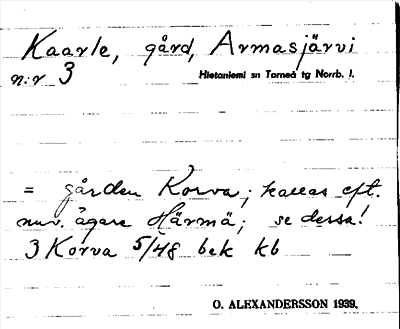 Kaarle, gård, Armasjärvi
n:r 3 Hietaniemi sn Torneå tg Norrb. l.
= gården Korva; kallas eft.
nuv. ägare Härmä; se dessa!
3 Korva 5/48 bek kb
O. ALEXANDERSSON 1939.